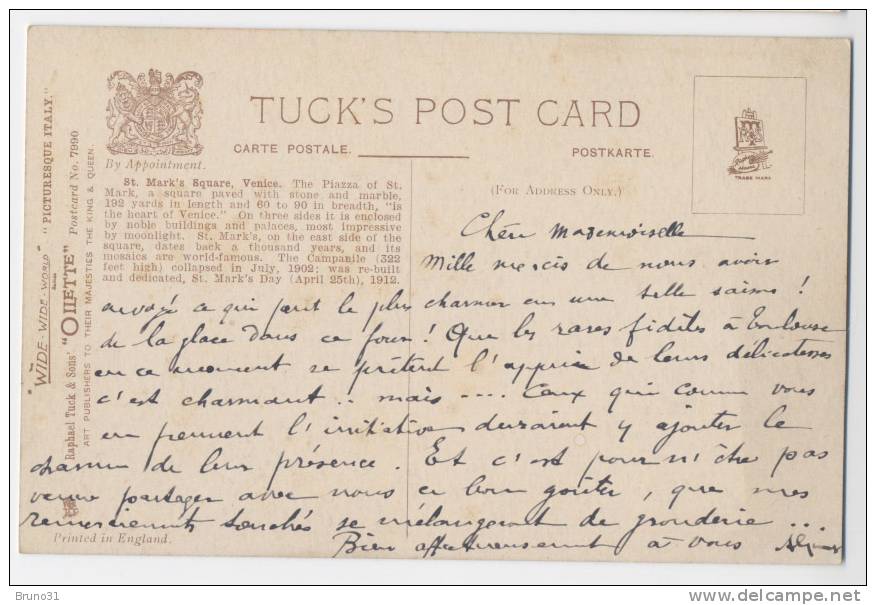 TUCK'S POST CARD
CARTE POSTALE.
POSTKARTE.
(FOR ADDRESS ONLY.)
By Appointment.
TRADE MARK
St. Mark's Square, Venice. The Piazza of St.
Mark, a square paved with stone and marble,
192 yards in length and 60 to 90 in breadth, "is
the heart of Venice." On three sides it is enclosed
by noble buildings and palaces, most impressive
by moonlight. St. Mark's, on the east side of the
square, dates back a thousand years, and its
mosaics are world-famous. The Campanile (322
feet high) collapsed in July, 1902; was re-built
and dedicated, St. Mark's Day (April 25th), 1912.
"WIDE-WIDE-WORLD" "PICTURESQUE ITALY."
Raphael Tuck & Sons' "OILETTE" Postcard No. 7990
ART PUBLISHERS TO THEIR MAJESTIES THE KING & QUEEN.
Printed in England.
Chère Mademoiselle
Mille mercis de nous avoir
envoyé ce qui peut le plus charmer en une telle saison !
de la glace dans ce four ! Que les rares fidèles à Toulouse
en ce moment se prêtent l' de leurs délicatesses
c'est charmant .. mais .... Ceux qui comme vous
en prennent l'initiative devraient y ajouter le
charme de leur présence. Et c'est pour n'être pas
venue partager avec nous ce bon goûter, que mes
remerciements touchés se mélangeront de gronderie ...
Bien affectueusement à vous
Bruno31
www.delcampe.net